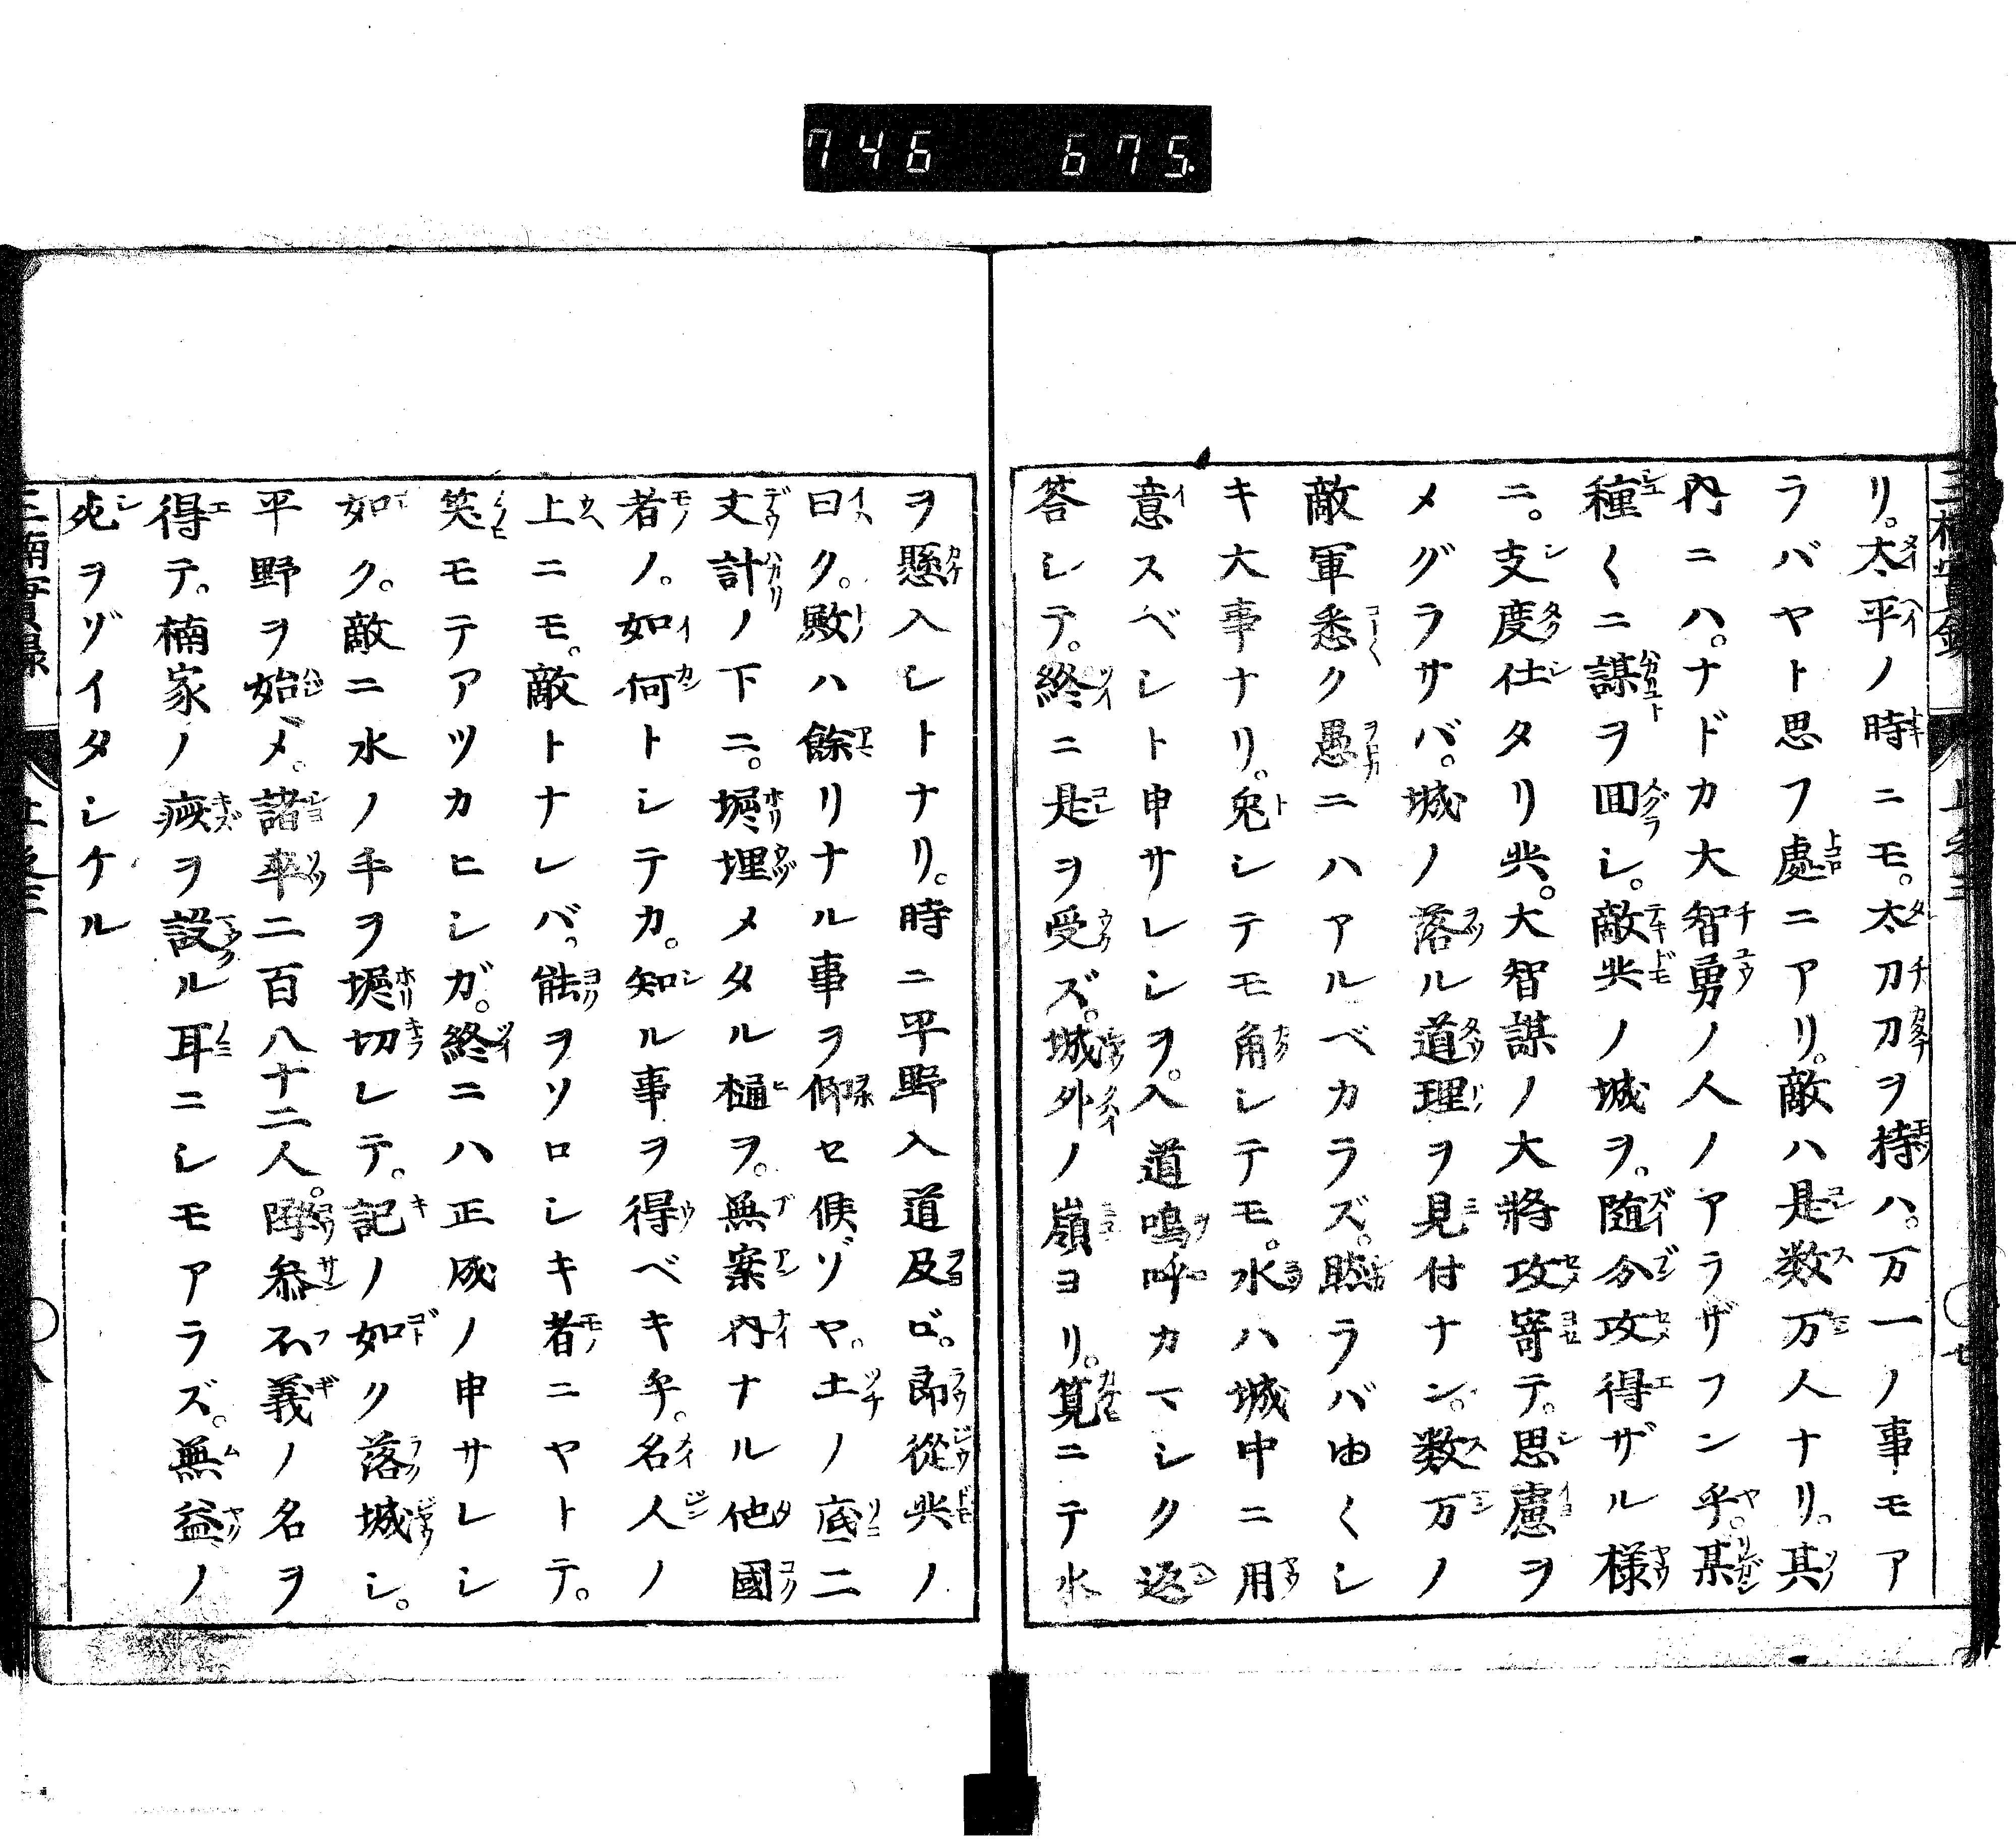 746 675
リ。太平ノ時ニモ。太刀刀ヲ持ハ。万一ノ事モア
ラバヤト思フ處ニアリ。敵ハ是数万人ナリ。其
内ニハ。ナドカ大智勇ノ人ノアラザフン乎。某
種〱ニ謀ヲ囬シ。敵共ノ城ヲ。随分攻得ザル様
ニ。支度仕タリ共。大智謀ノ大將攻寄テ。思慮ヲ
メグラサバ。城ノ落ル道理ヲ見付ナン。数万ノ
敵軍悉ク愚ニハアルベカラズ。𦖁ラバ由〱シ
キ大事ナリ。兎シテモ角シテモ。水ハ城中ニ用
意スベシト申サレシヲ。入道鳴呼カマシク返
答シテ。終ニ是ヲ受ズ。城外ノ嶺ヨリ。筧ニテ水
ヲ懸入シトナリ。時ニ平野入道及ビ。郎從共ノ
曰ク。殿ハ餘リナル事ヲ仰セ候ゾヤ。土ノ底二
丈計ノ下ニ。堀埋メタル樋ヲ。無案内ナル他國
者ノ。如何トシテカ。知ル事ヲ得ベキ乎。名人ノ
上ニモ。敵トナレバ。能ヲソロシキ者ニヤトテ。
笑モテアツカヒシガ。終ニハ正成ノ申サレシ
如ク。敵ニ水ノ手ヲ堀切レテ。記ノ如ク落城シ。
平野ヲ始メ。諸卒二百八十二人。降参不義ノ名ヲ
得テ。楠家ノ疵ヲ設ル耳ニシモアラズ。無益ノ
死ヲゾイタシケル
三楠實録